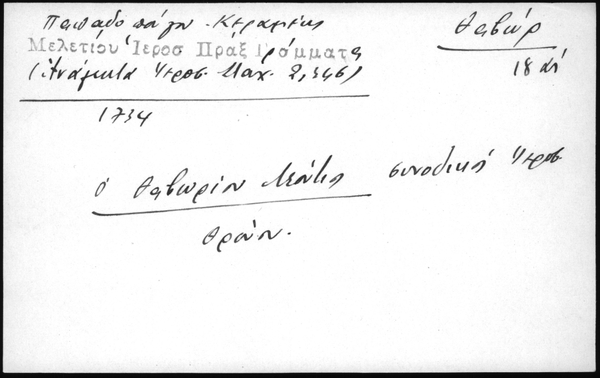 Παπαδοπούλου - Κεραμέως
Μελετίου Ἱεροσ Πράξ Γράμματα
(Ἀνάλεκτα Ἱεροσ. Σταχ. 2, 346)
1734
Θαβώρ
18 αἰ
ὁ Θαβωρίου Νεόφυτος συνοδικός Ἱεροσ
θρόνου.